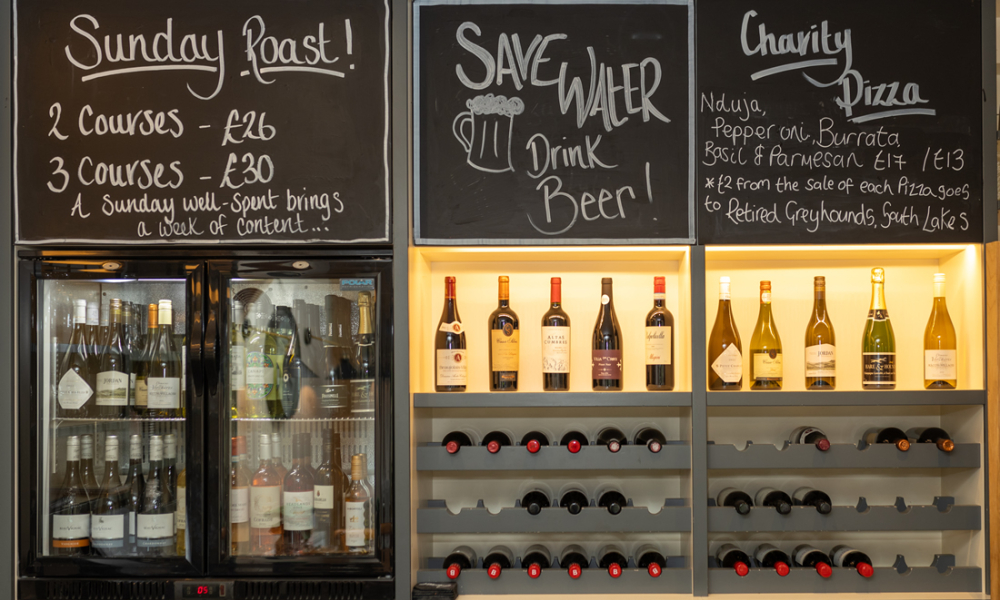 Sunday Roast!
2 Courses - £26
3 Courses - £30
A Sunday well-spent brings
a week of content...
SAVE WATER
Drink
Beer!
Charity
Pizza
Nduja,
Pepperoni, Burrata
Basil & Parmesan £17 / £13
*£2 from the sale of each Pizza goes
to Retired Greyhounds, South Lakes
JORDAN
JORDAN
05